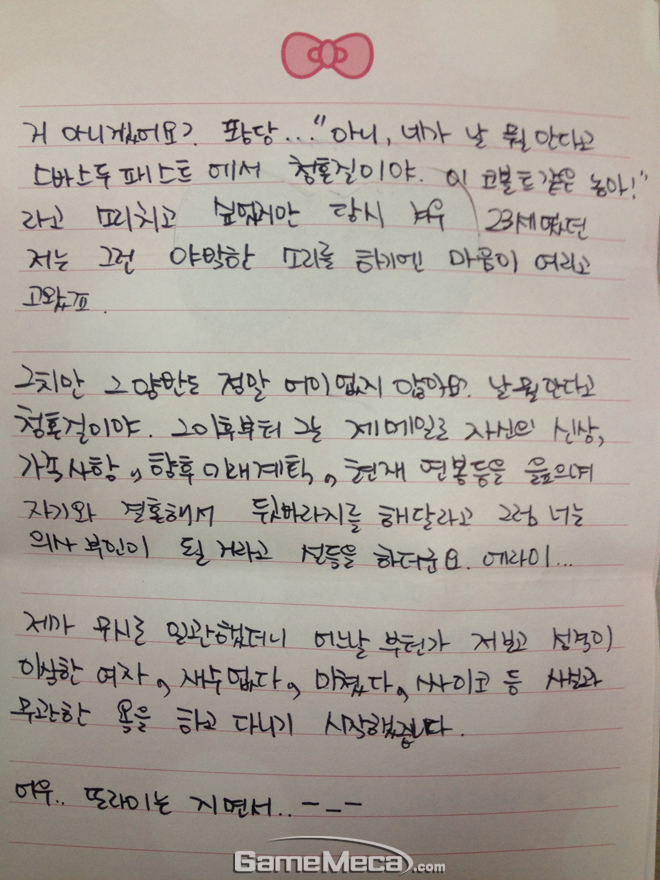 거 아니겠어요? 황당..."아니, 네가 날 뭘 안다고
스바스두 패스트 에서 청혼걸이야. 이 코볼트같은 놈아!"
라고 뿌리치고 싶었지만 당시 겨우 23세였던
저는 그런 야박한 소리를 하기엔 마음이 여리고
고왔죠.
그치만 그 양반도 정말 어이없지 않아요? 날 뭘 안다고
청혼걸이야. 그이후부터 그는 제 메일로 자신의 신상,
가족사항, 향후 미래계획, 현재 연봉등을 읊으며
자기와 결혼해서 뒷바라지를 해달라고 그럼 너는
의사 부인이 될 거라고 선동을 하더군요. 에라이...
제가 무시로 일관했더니 어느날 부턴가 저보고 성격이
이상한 여자, 재수없다, 미쳤다, 싸이코 등 사실과
무관한 욕을 하고 다니기 시작했습니다.
어우.. 또라이는 지면서.. ㅡ_ㅡ
GameMeca.com